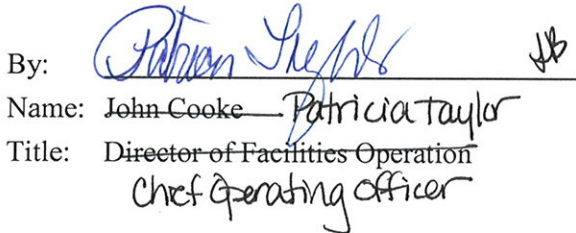 By:
Name: John Cooke Patricia Taylor
Title: Director of Facilities Operation
Chief Operating Officer